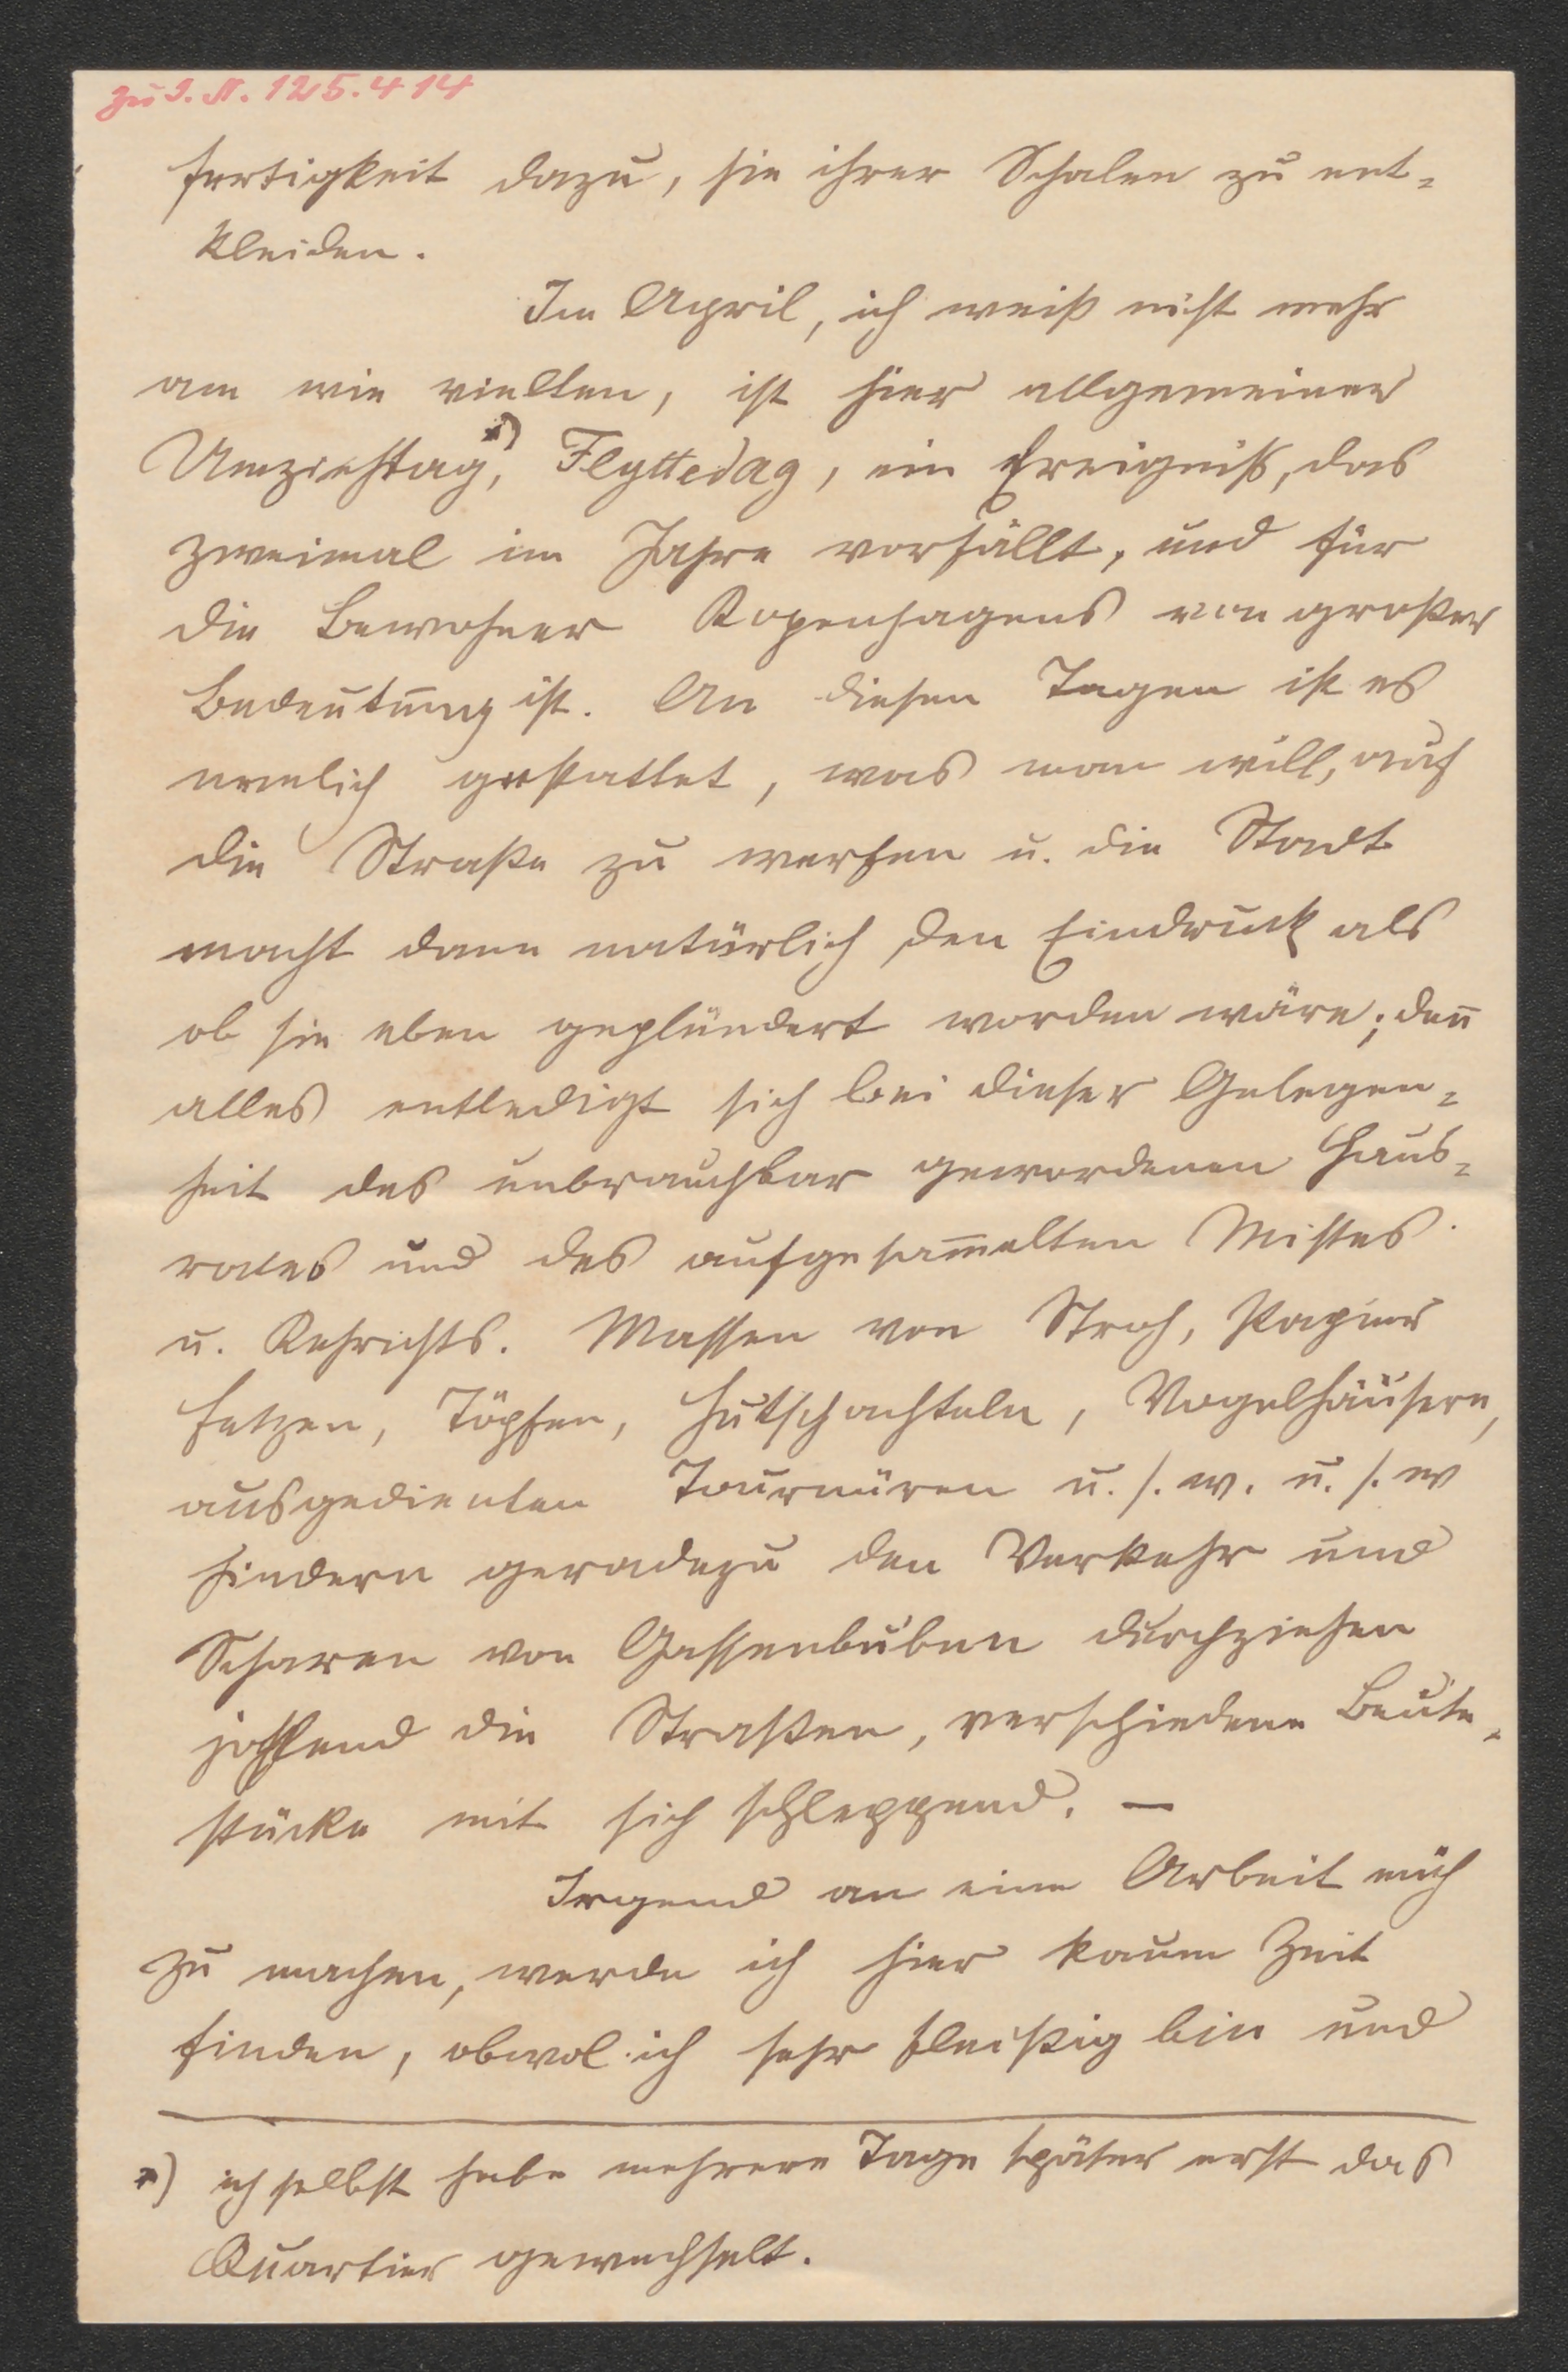 zu I. N. 125.414
fertigkeit dazu, sie ihrer Schalen zu ent-
kleiden.
Im April, ich weiß nicht mehr
am wie vielten, ist hier allgemeiner
Umziehtag,*) Flyttedag, ein Ereigniß, das
zweimal im Jahre vorfällt, und für
die Bewohner Kopenhagens von großer
Bedeutung ist. An diesen Tagen ist es
nemlich gestattet, was man will, auf
die Straße zu werfen u. die Stadt
macht dann natürlich den Eindruck als
ob sie eben geplündert worden wäre; den̄
alles entledigt sich bei dieser Gelegen-
heit des unbrauchbar gewordenen Haus-
rates und des aufgesam̄elten Mistes
u. Kehrichts. Massen von Stroh, Papier
fetzen, Töpfen, Hutschachteln, Vogelhäusern,
ausgedienten Tournüren u. s. w. u. s. w
hindern geradezu den Verkehr und
Scharen von Gassenbuben durchziehen
johlend die Straßen, verschiedene Beute-
stücke mit sich schleppend. —
Irgend an eine Arbeit mich
zu machen, werde ich hier kaum Zeit
finden, obwol ich sehr fleißig bin und
*) ich selbst habe mehrere Tage später erst das
Quartier gewechselt.